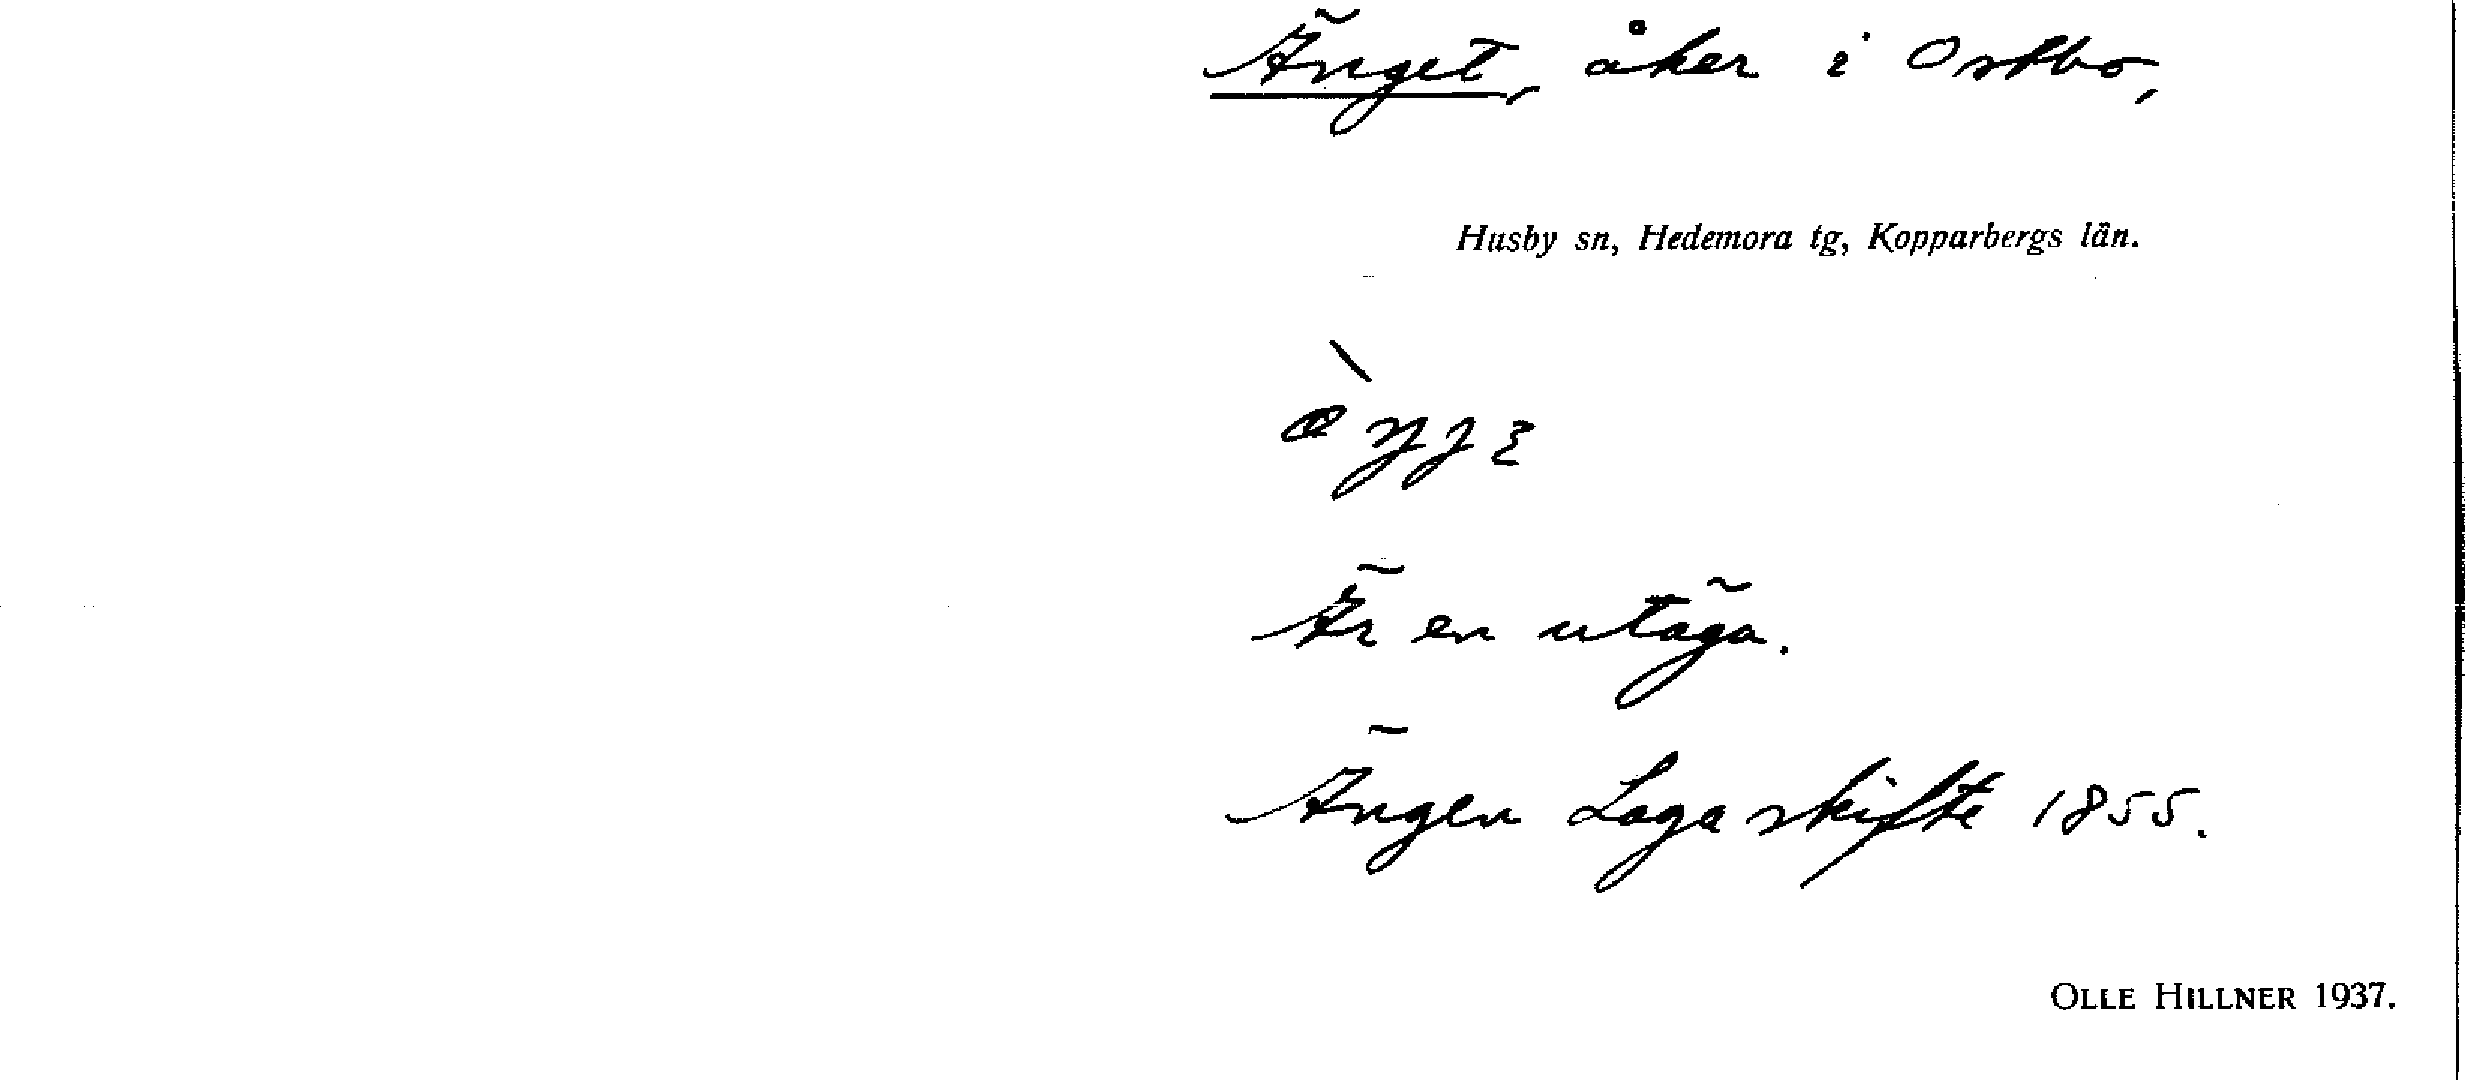 Änget, åker i Ostbo,
Husby sn, Hedemora tg, Kopparbergs län.
Är en utäga.
Ängen Laga skifte 1855.
OLLE HILLNER 1937.